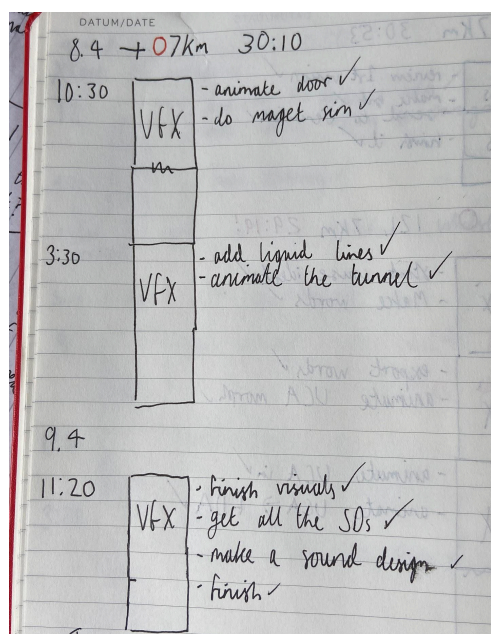 DATUM/DATE
8.4 → 07km 30:10
10:30
VFX
- animate door ✓
- do maget sim ✓
m
3:30
VFX
- add liquid lines ✓
- animate the tunnel ✓
9.4
11:20
VFX
- finish visuals ✓
- get all the SDs ✓
- make a sound design ✓
- finish ✓